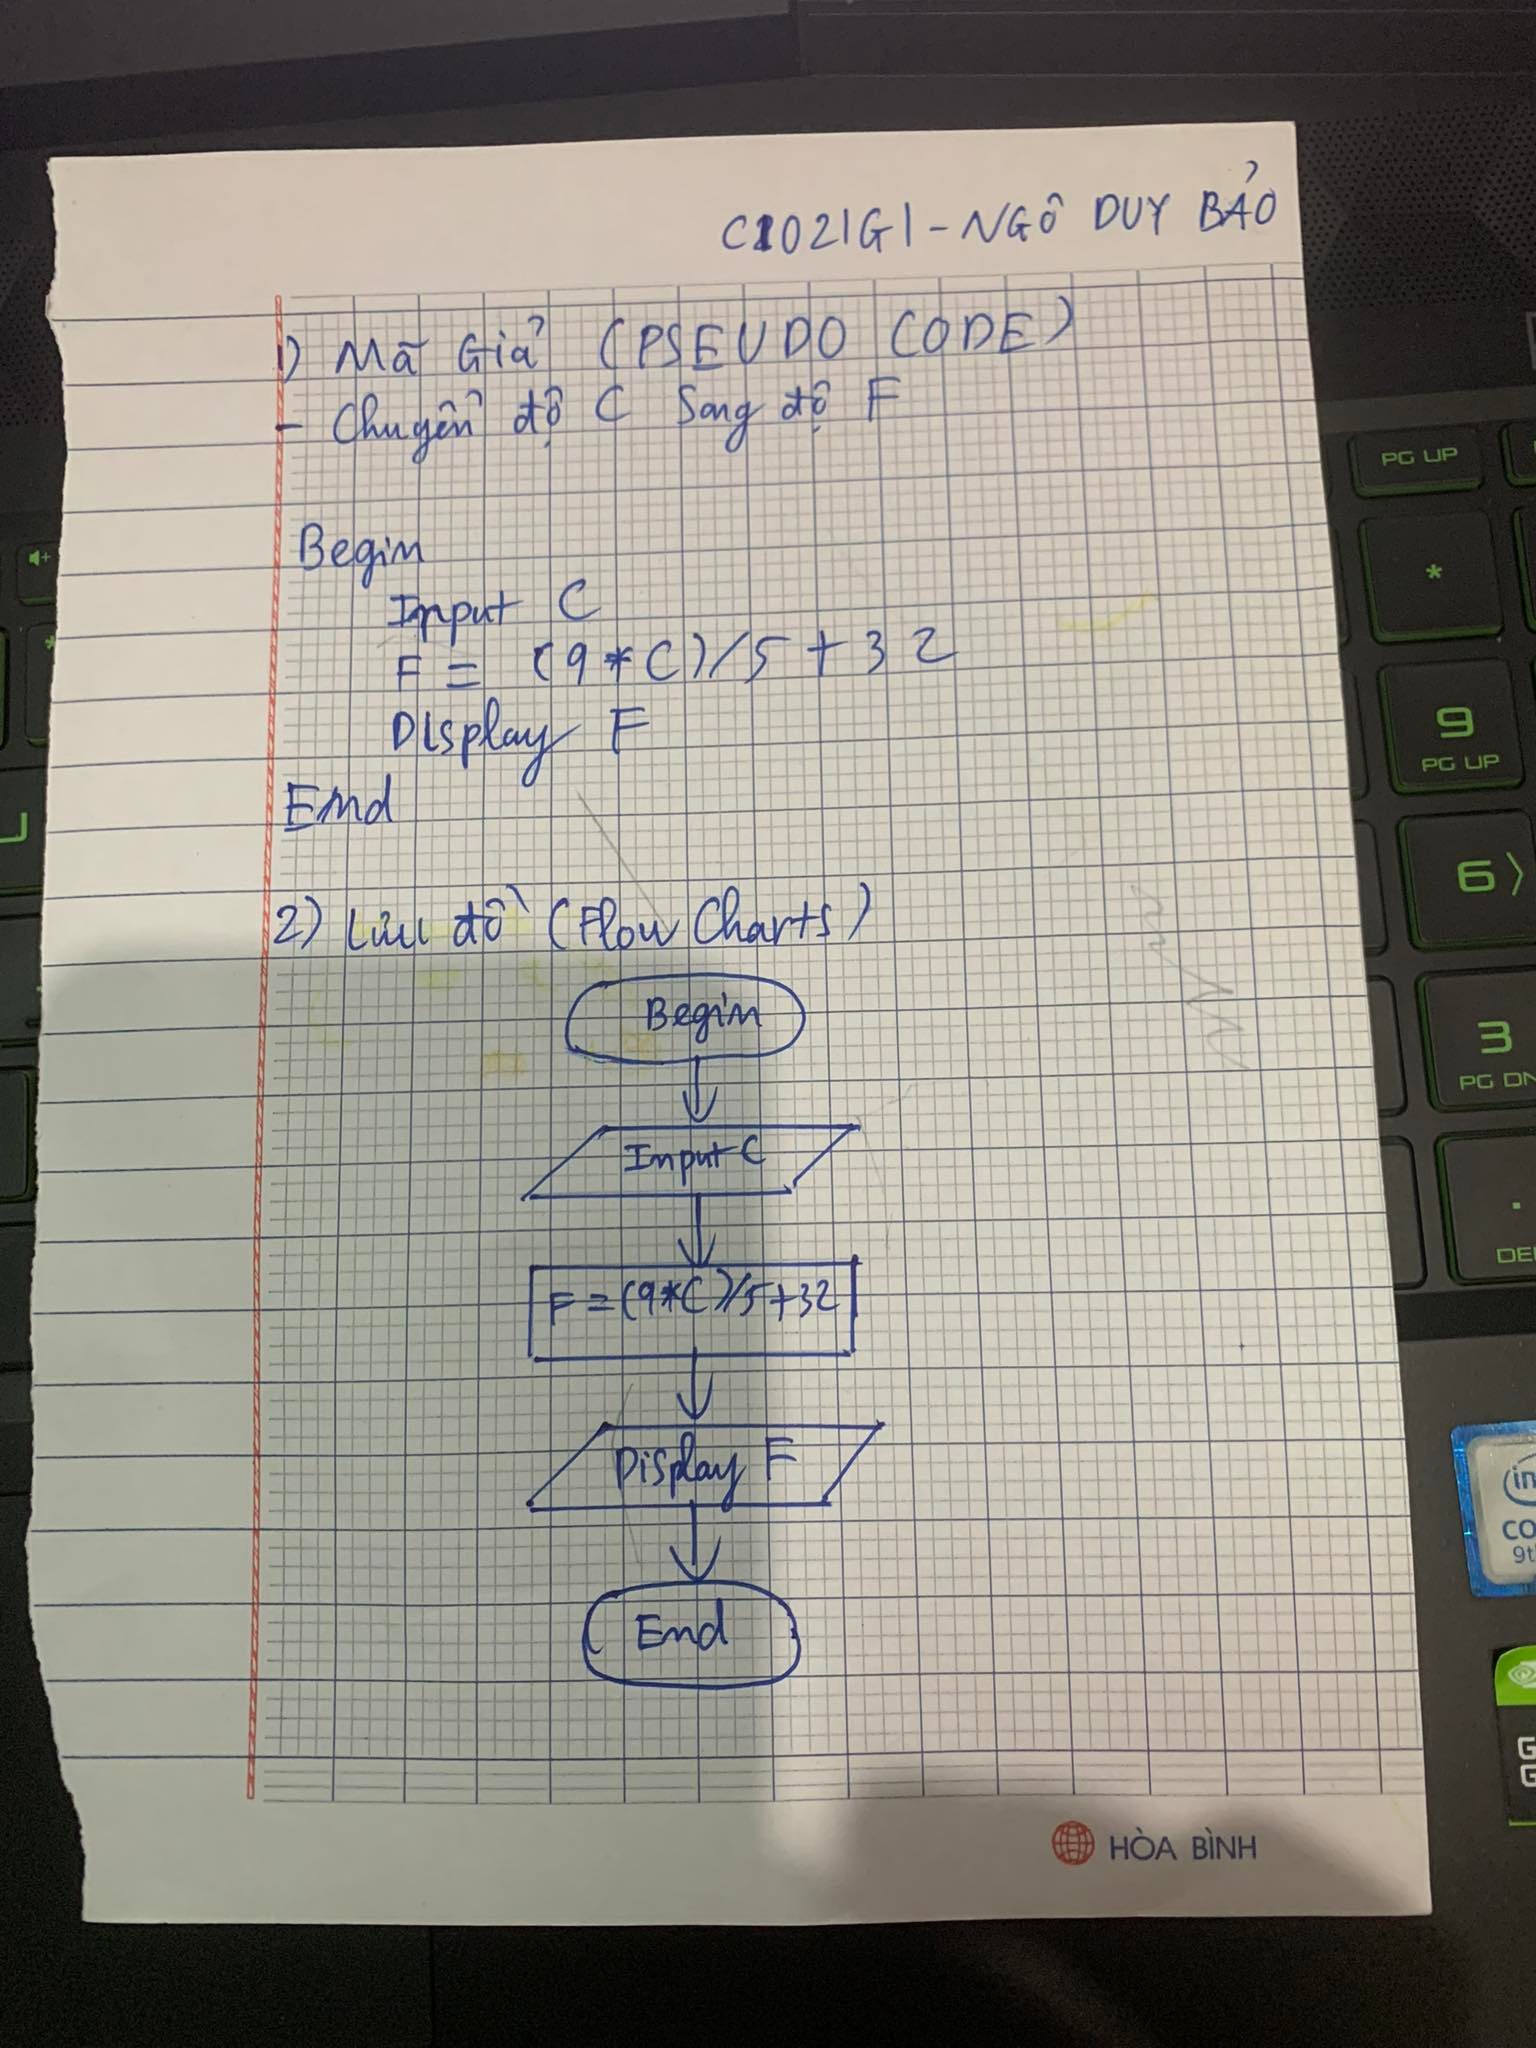 C1021G1 - NGÔ DUY BẢO
1) Mã Giả (PSEUDO CODE)
- Chuyển độ C Sang độ F
Begin
Input C
F = (9 * C) / 5 + 32
Display F
End
2) Lưu đồ (Flow Charts)
Begin
Input C
F = (9*C)/5+32
Display F
End
HÒA BÌNH
PG UP
*
9
PG UP
6
3
PG DN
.
DEL